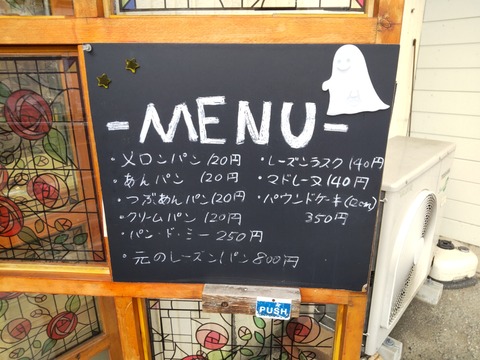 -MENU-
・メロンパン 120円
・あんパン 120円
・つぶあんパン 120円
・クリームパン 120円
・パン・ド・ミー 250円
・元のレーズンパン 800円
・レーズンラスク 140円
・マドレーヌ 140円
・パウンドケーキ(12cm)
350円
PUSH